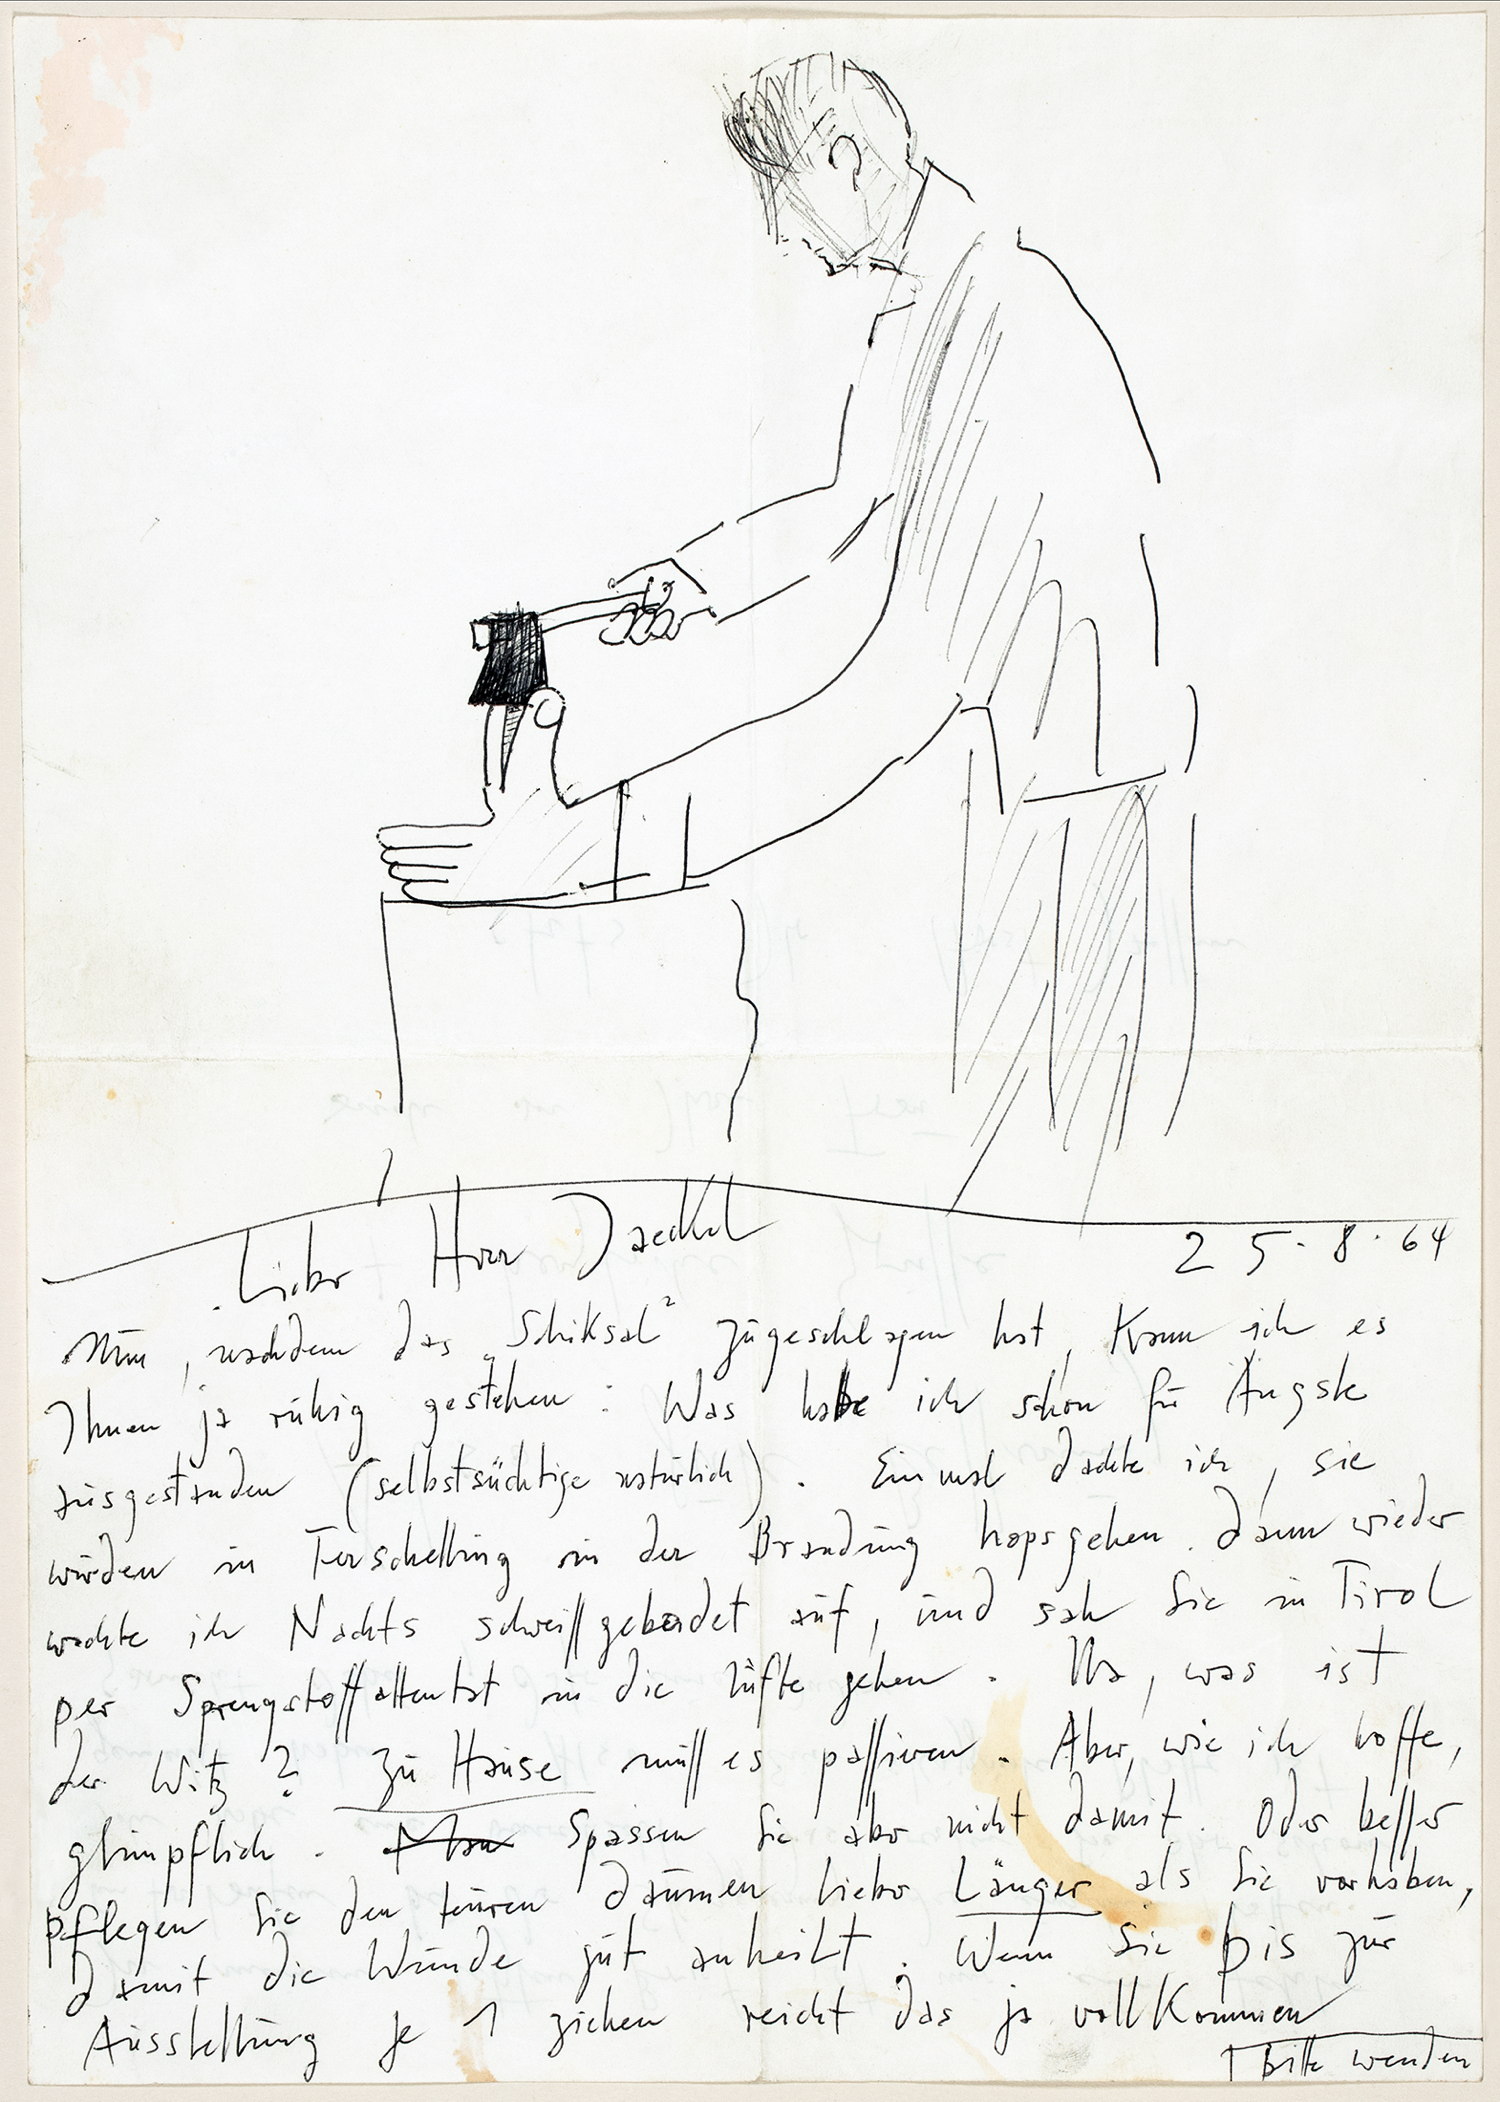 Lieber Herr Daeckel
25.8.64
Nun, nachdem das „Schiksal" zugeschlagen hat, Kann ich es
Ihnen ja ruhig gestehen: Was habe ich schon für Ängste
ausgestanden (selbstsüchtige natürlich). Einmal dachte ich, sie
würden in Terschelling in der Brandung hopsgehen. dann wieder
wachte ich Nachts schweißgebadet auf, und sah Sie in Tirol
per Sprengstoffattentat in die Lüfte gehen. Na, was ist
der Witz? Zu Hause muß es paßieren. Aber, wie ich hoffe,
glimpflich. Spassen Sie aber nicht damit. Oder beßer
pflegen Sie den teuren Daumen lieber Länger als Sie vorhaben,
damit die Wunde gut anheilt. Wenn Sie bis zur
Ausstellung je 1 ziehen reicht das ja vollkommen
Bitte wenden